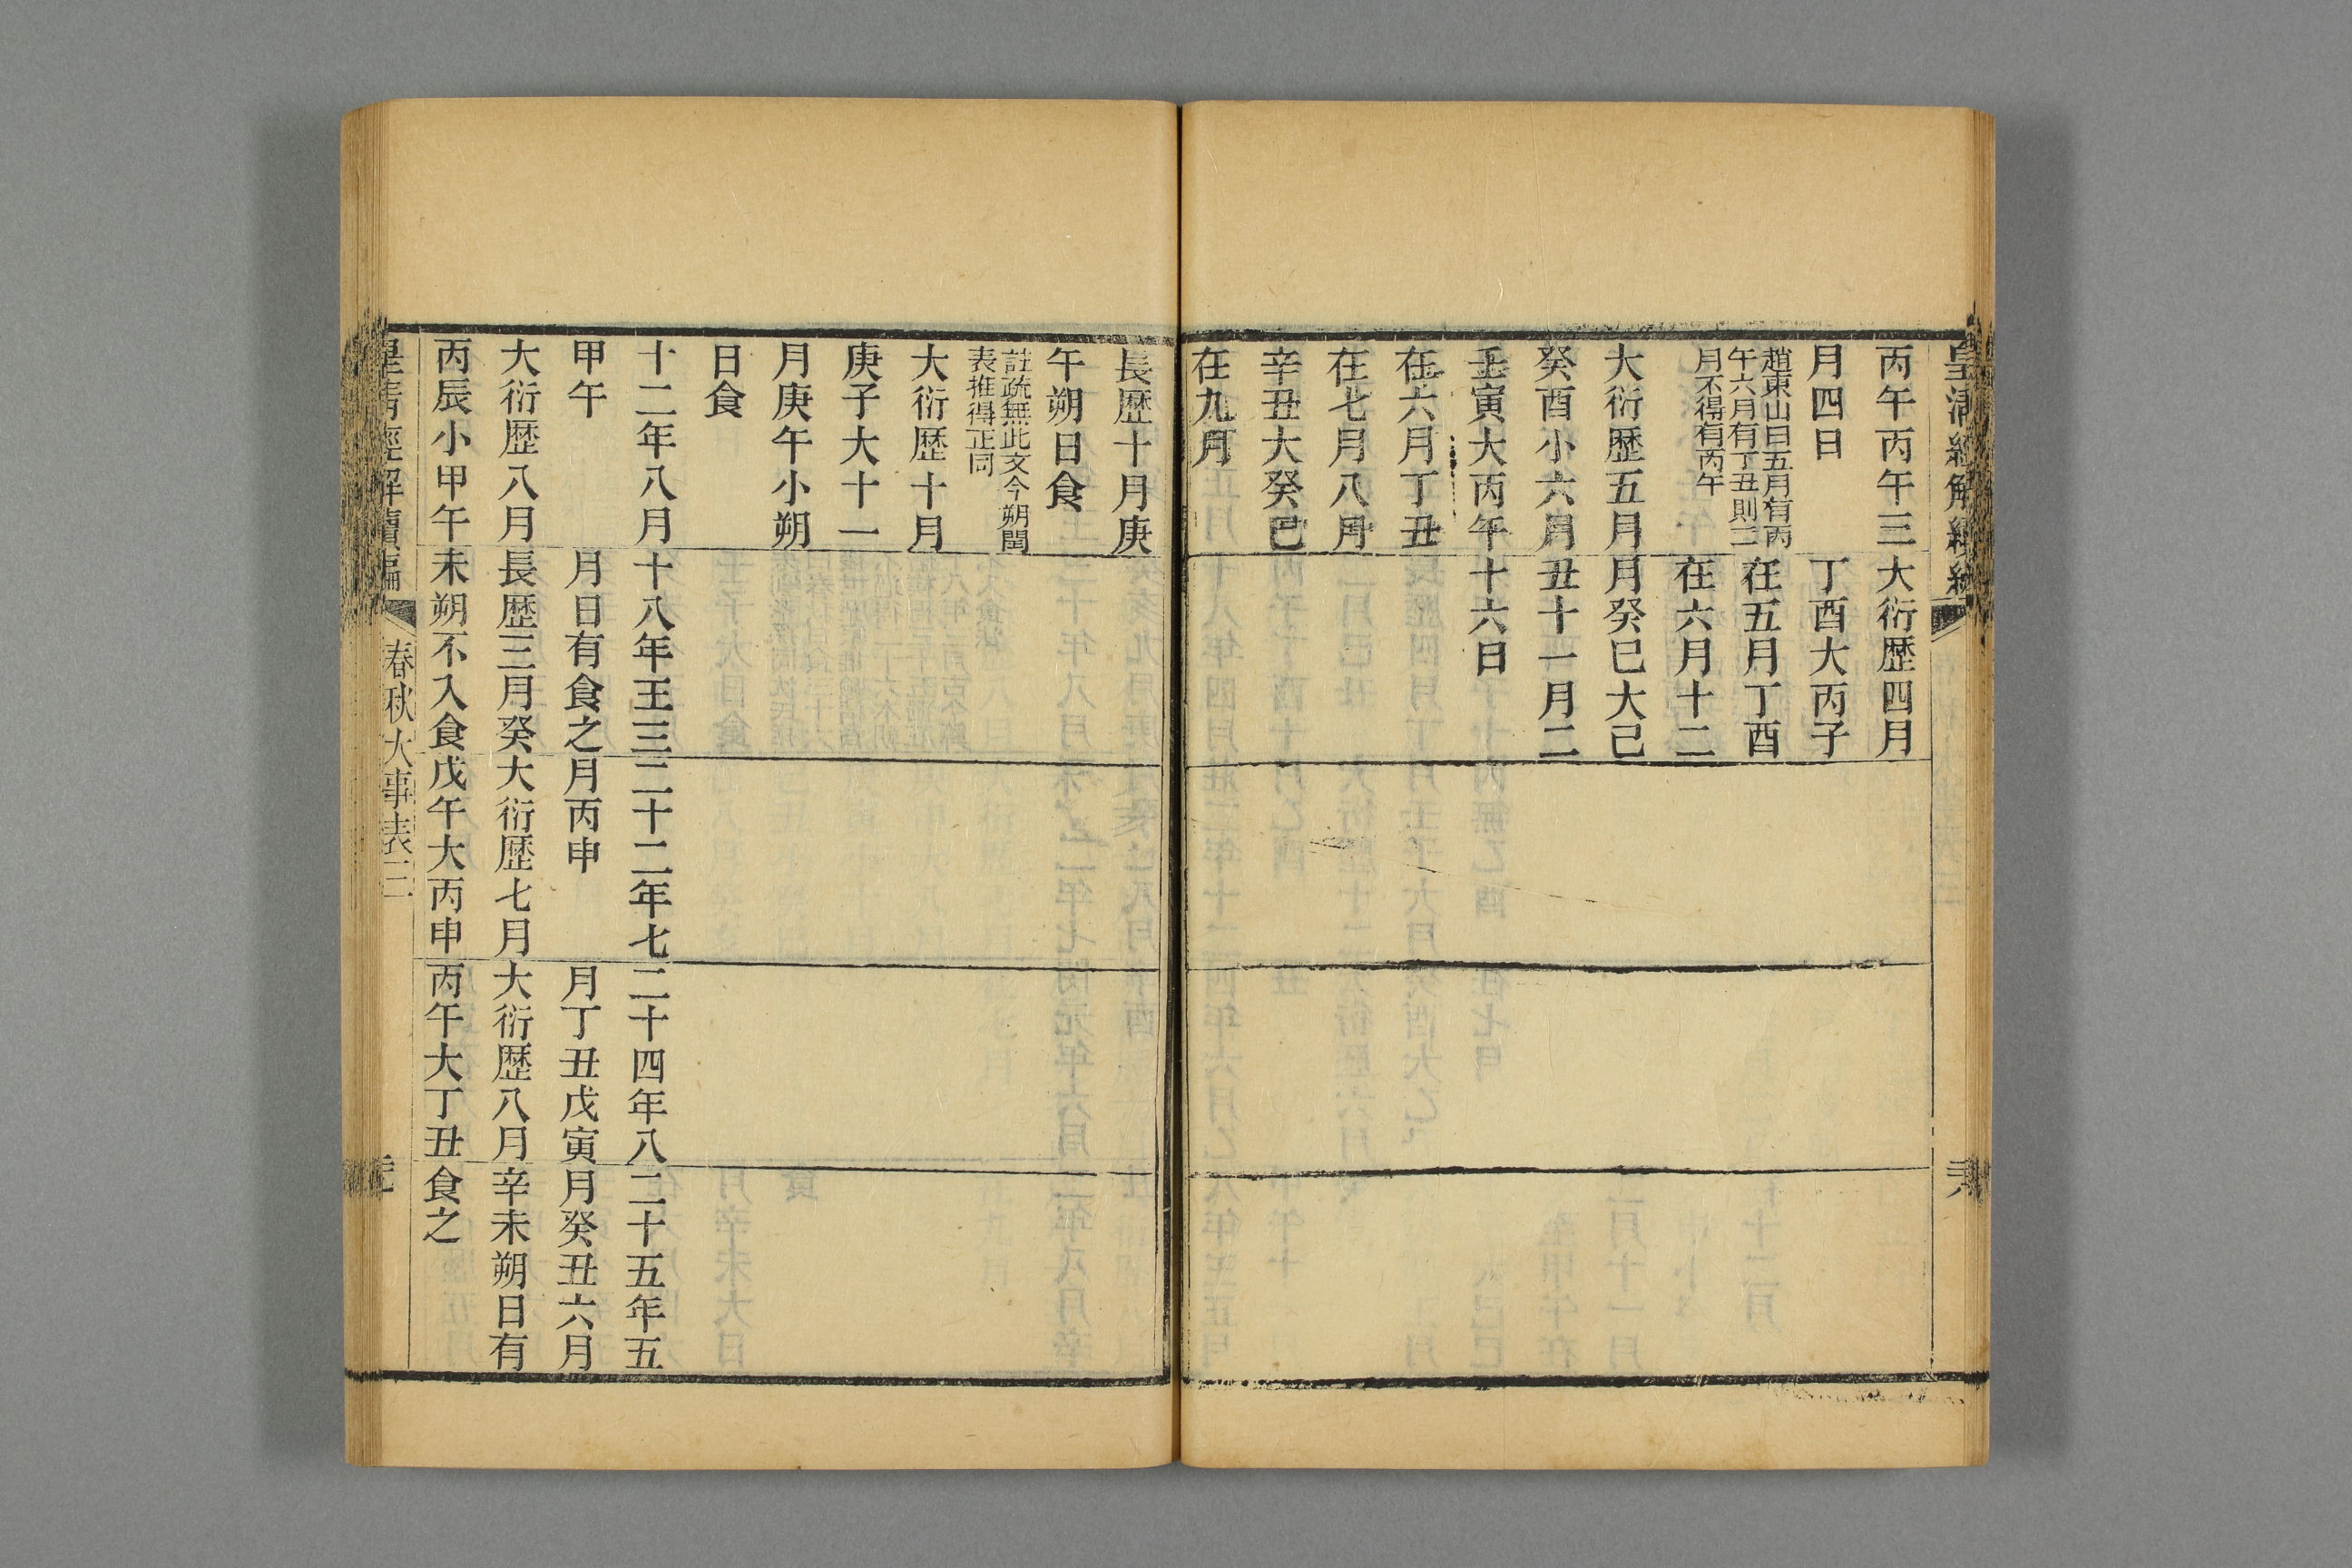 皇清經解續編
丙午丙午三
月四日
趙東山曰五月有丙
午六月有丁丑則三
月不得有丙午
大衍歷五月
癸酉小六月
壬寅大丙午
在六月丁丑
在七月八月
辛丑大癸巳
在九月
大衍歷四月
丁酉大丙子
在五月丁酉
在六月十二
月癸巳大己
丑十一月二
十六日
長歷十月庚
午朔日食
註疏無此文今朔閏
表推得正同
大衍歷十月
庚子大十一
月庚午小朔
日食
十二年八月
甲午
大衍歷八月
丙辰小甲午
十八年王三
月日有食之
長歷三月癸
未朔不入食
二十二年七
月丙申
大衍歷七月
戊午大丙申
二十四年八
月丁丑戊寅
大衍歷八月
丙午大丁丑
二十五年五
月癸丑六月
辛未朔日有
食之
皇清經解續編
春秋大事表二